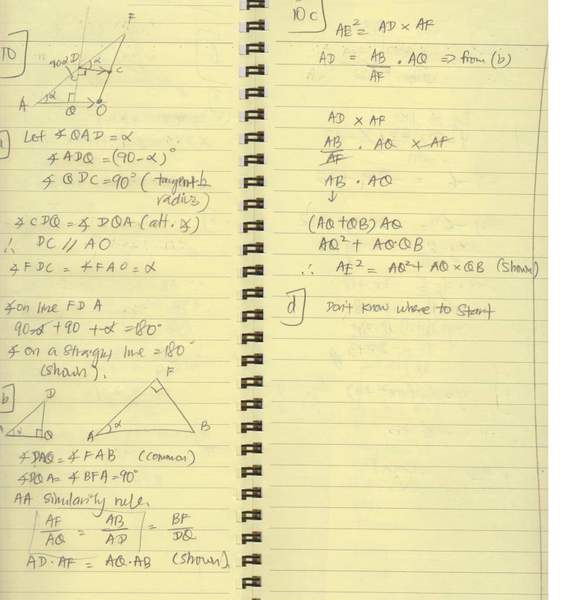 10
F
D
90-α
α
C
A
α
Q
O
a
Let ∡QAD = α
∡ADQ = (90-α)°
∡QDC = 90° (tangent ⊥
radius)
∡CDQ = ∡DQA (alt. ∡)
∴ DC // AO
∡FDC = ∡FAO = α
∡ on line FDA
90-α + 90 + α = 180°
∡ on a straight line = 180°
(shown).
b
D
α
Q
F
A
α
B
∡DAQ = ∡FAB (common)
∡DQA = ∡BFA = 90°
AA similarity rule.
AF/AQ = AB/AD = BF/DQ
AD·AF = AQ·AB (shown).
10c
AE² = AD × AF
AD = AB/AF · AQ ⇒ from (b)
AD × AF
AB/AF · AQ × AF
AB · AQ
↓
(AQ+QB) AQ
AQ² + AQ·QB
∴ AE² = AQ² + AQ × QB (shown)
d
Don't know where to start